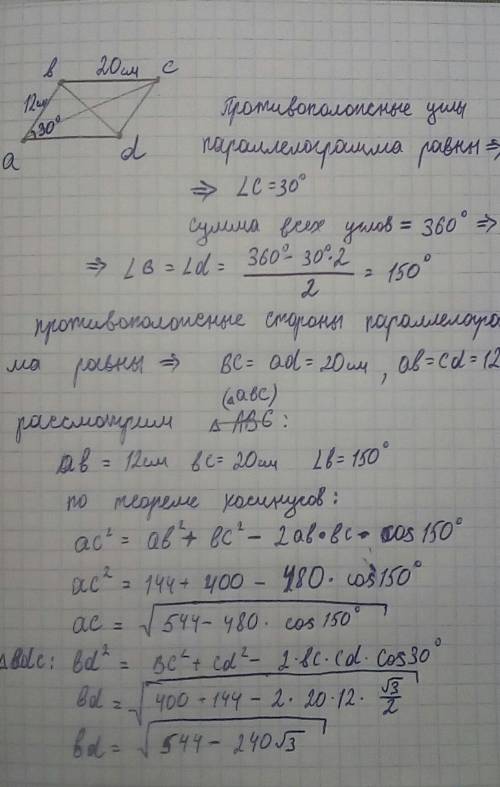 в 20см с
12см
30°
a d
Противоположные углы
параллелограмма равны ⇒
⇒ ∠C = 30°
сумма всех углов = 360° ⇒
⇒ ∠B = ∠d = (360° - 30°·2)/2 = 150°
противоположные стороны параллелогра
ма равны ⇒ BC = ad = 20см, ab = Cd = 12
(△aBC)
рассмотрим △ABC:
ab = 12см bc = 20см ∠B = 150°
по теореме косинусов:
ac² = ab² + bc² - 2ab·bc·cos150°
ac² = 144 + 400 - 480·cos150°
ac = √(544 - 480·cos150°)
△bdc: bd² = BC² + cd² - 2·BC·Cd·Cos30°
bd = √(400 + 144 - 2·20·12·√3/2)
bd = √(544 - 240√3)